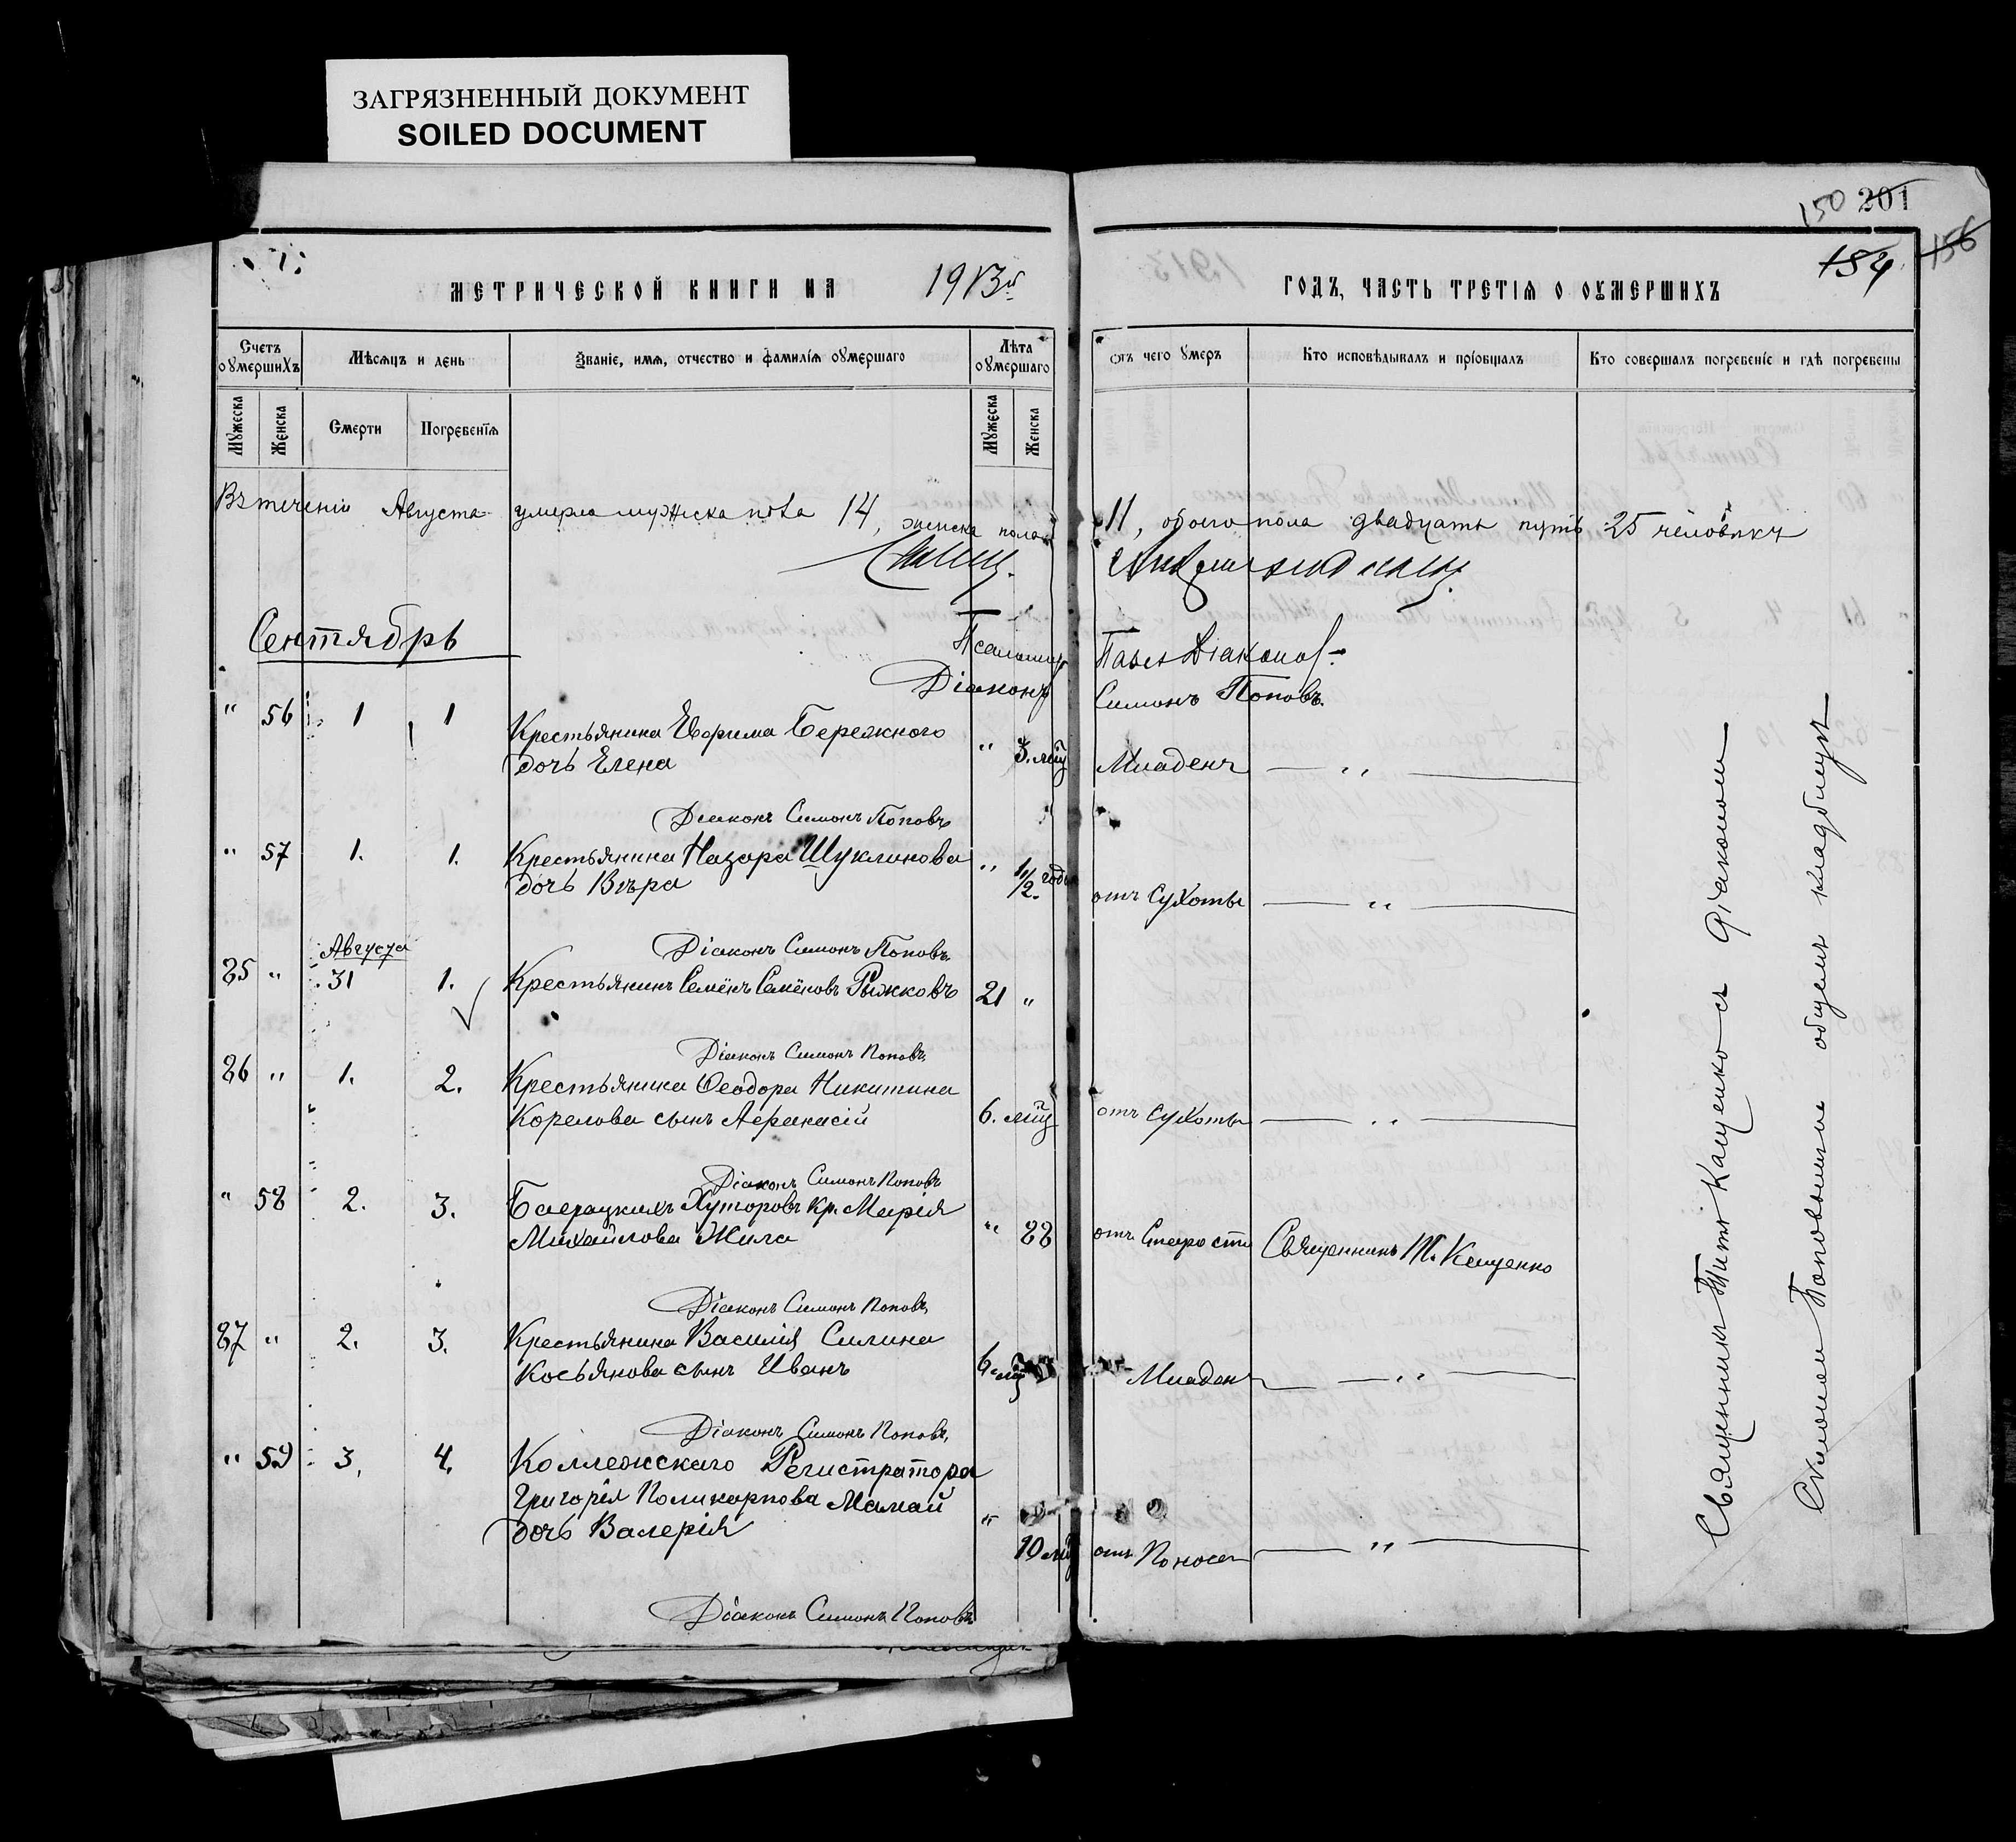 ЗАГРЯЗНЕННЫЙ ДОКУМЕНТ
SOILED DOCUMENT
150 201
154 156
МЕТРИЧЕСКОЙ КНИГИ НА 1913 г.
ГОДЪ, ЧАСТЬ ТРЕТІЯ О ОУМЕРШИХЪ
Счетъ оумершихъ
Мѣсяцъ и день
Званіе, имя, отчество и фамилія оумершаго
Лѣта оумершаго
отъ чего умеръ
Кто исповѣдывалъ и пріобщалъ
Кто совершалъ погребеніе и гдѣ погребены
Мужеска
Женска
Смерти
Погребенія
Мужеска
Женска
Въ теченіи Августа умерло мужска пола 14, женска пола 11, обоего пола двадцать пять 25 человѣкъ
Сентябрь
Псаломщ Павел Діаконов
Діаконъ Симонъ Поповъ.
" 56 1 1 Крестьянина Ефрима Бережного
дочь Елена " 3. мѣц Младенч — " —
Діаконъ Симонъ Поповъ
" 57 1. 1. Крестьянина Назара Шуклинова " 1 1/2 года
дочь Вѣра отъ Сухоты — " —
Діаконъ Симонъ Поповъ
Августа
85 " 31 1. Крестьянинъ Семёнъ Семёновъ Рыжковъ 21 "
Діаконъ Симонъ Поповъ
86 " 1. 2. Крестьянина Ѳеодора Никитина
Корелова сынъ Афанасій 6. мѣц отъ Сухоты — " —
Діаконъ Симонъ Поповъ
" 58 2. 3. Хуторовъ Кр. Марія
Михайлова Жила " 88 отъ Старости Священникъ Т. Кащенко
Діаконъ Симонъ Поповъ
87 " 2. 3. Крестьянина Василія Силина
Косьянова сынъ Иванъ 6 мѣц Младен — " —
Діаконъ Симонъ Поповъ
" 59 3, 4. Коллежскаго Регистратора
Григорія Поликарпова Мамай
дочь Валерія " 10 мѣц отъ Поноса — " —
Діаконъ Симонъ Поповъ
Священникъ Титъ Кащенко съ Діакономъ
Симономъ Поповымъ на общемъ кладбищѣ